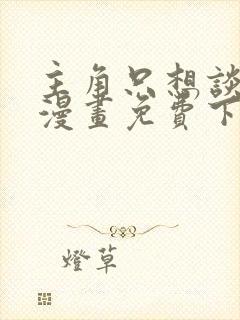 主角只想談
漫畫免費下
燈草